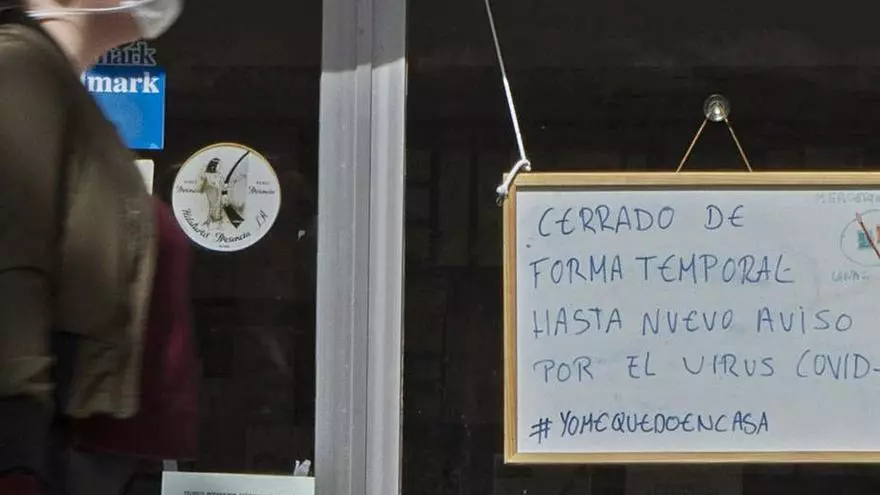 mark
mark
Hilaturas Presencia S.A.
CERRADO DE
FORMA TEMPORAL
HASTA NUEVO AVISO
POR EL VIRUS COVID-
#YOMEQUEDOENCASA